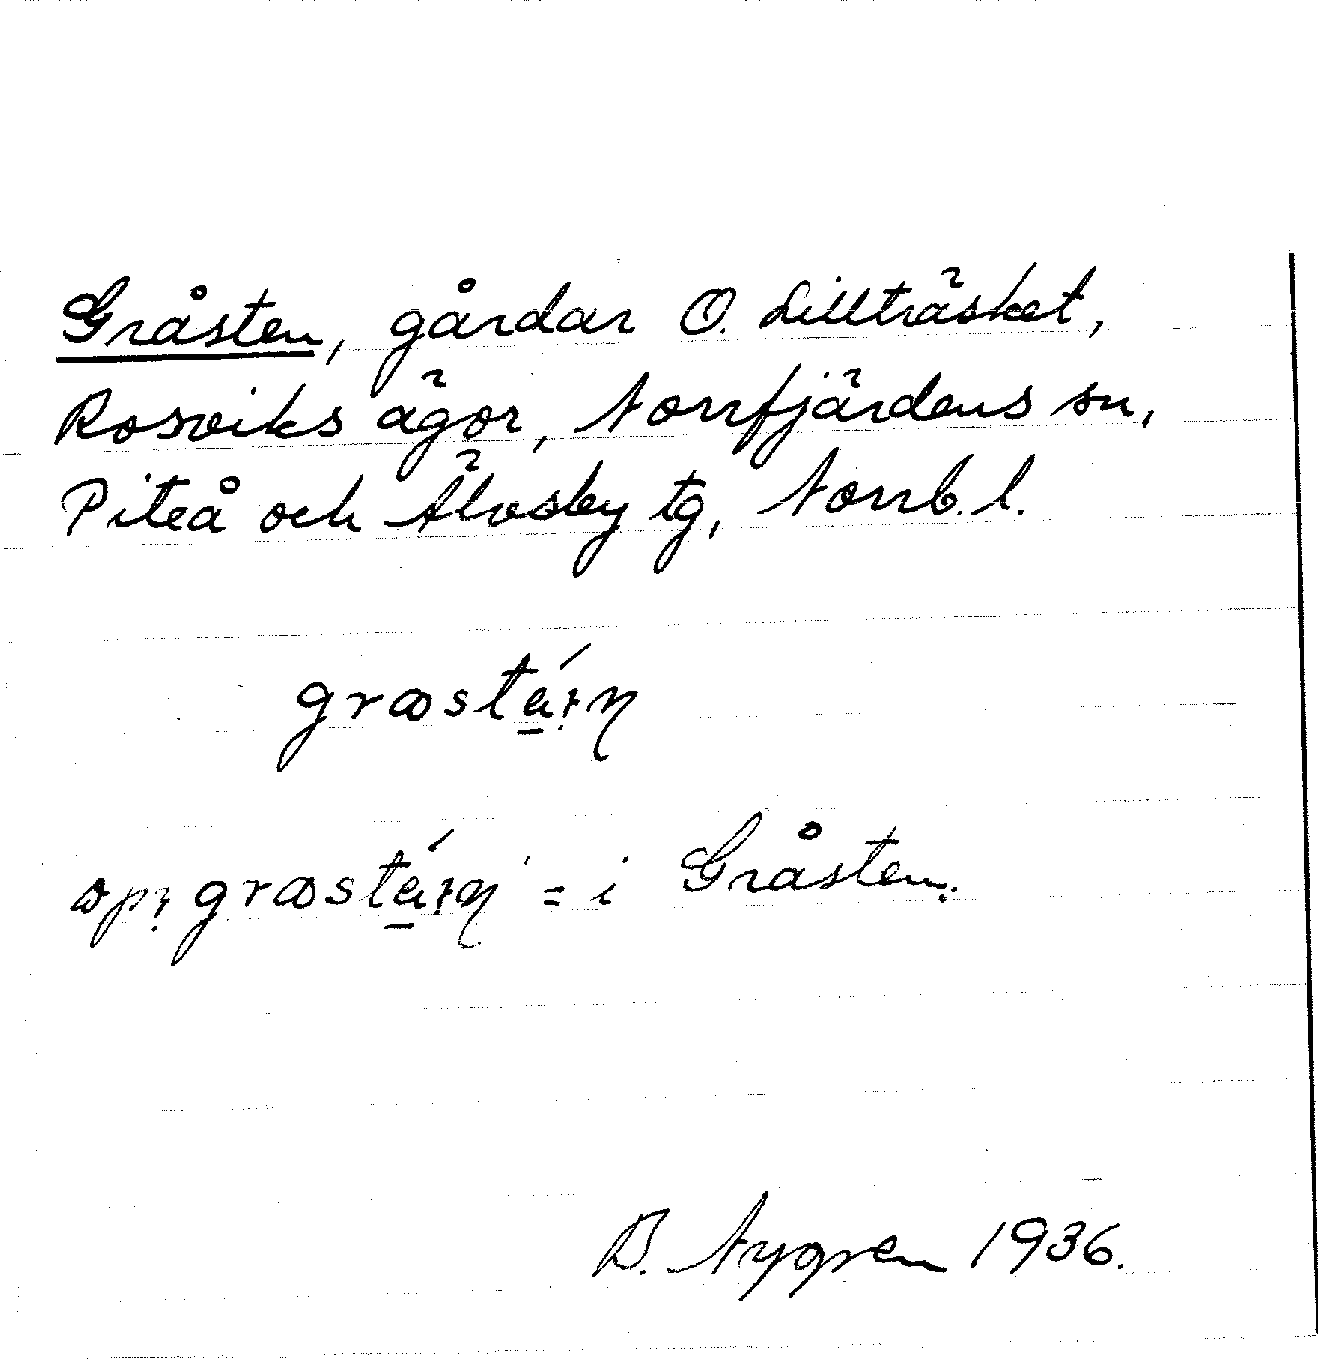 Gråsten, gårdar O. Lillträsket,
Rosviks ägor, Norrfjärdens sn,
Piteå och Älvsby tg, Norrb. l.
= i Gråsten.
B. Nygren 1936.